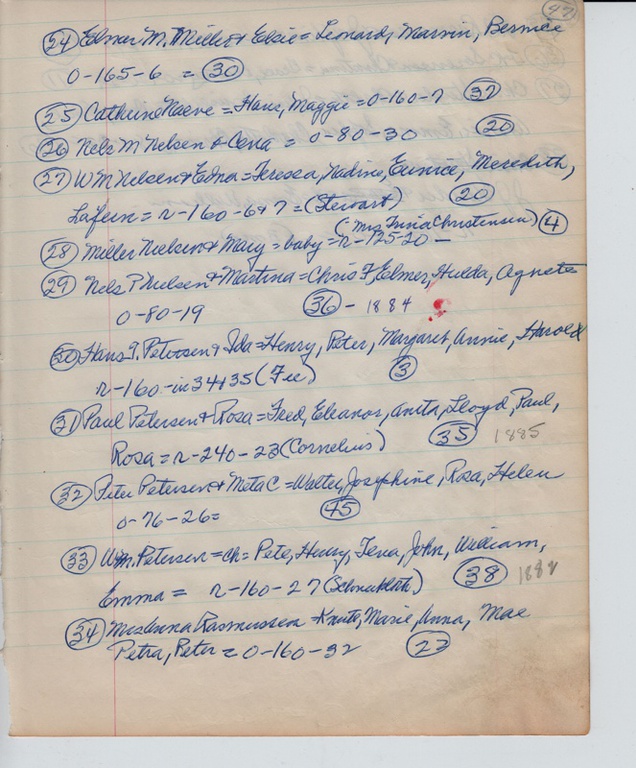 47
24 Elmer M. Miller + Elsie = Leonard, Marvin, Bernice
0-165-6 = 30
25 Cathrine Naeve = Hans, Maggie = 0-160-7 37
26 Nels M Nelsen + Cena = 0-80-30 20
27 Wm Nelsen + Edna = Teressa, Nadine, Eunice, Meredith,
Lafern = r-160-6+7 = (Stewart) 20
(Mrs Trina Christensen) 4
28 Miller Nielsen + Mary = baby = r-125-20 -
29 Nels P Nielsen + Martina = Chris F, Elmer, Hulda, Agnete
0-80-19 36 - 1884
30 Hans P. Petersen + Ida = Henry, Peter, Margaret, Annie, Harold
r-160-in 34+35 (Fee) 3
31 Paul Petersen + Rosa = Fred, Eleanor, Anita, Lloyd, Paul,
Rosa = r-240-23 (Cornelius) 35 1885
32 Peter Petersen + Meta C = Walter, Josephine, Rosa, Helen
0-76-26 = 45
33 Wm. Petersen = ch = Pete, Henry, Tena, John, William,
Emma = r-160-27 38
34 Mrs Anna Rasmussen = Knute, Marie, Anna, Mae
Petra, Peter = 0-160-32